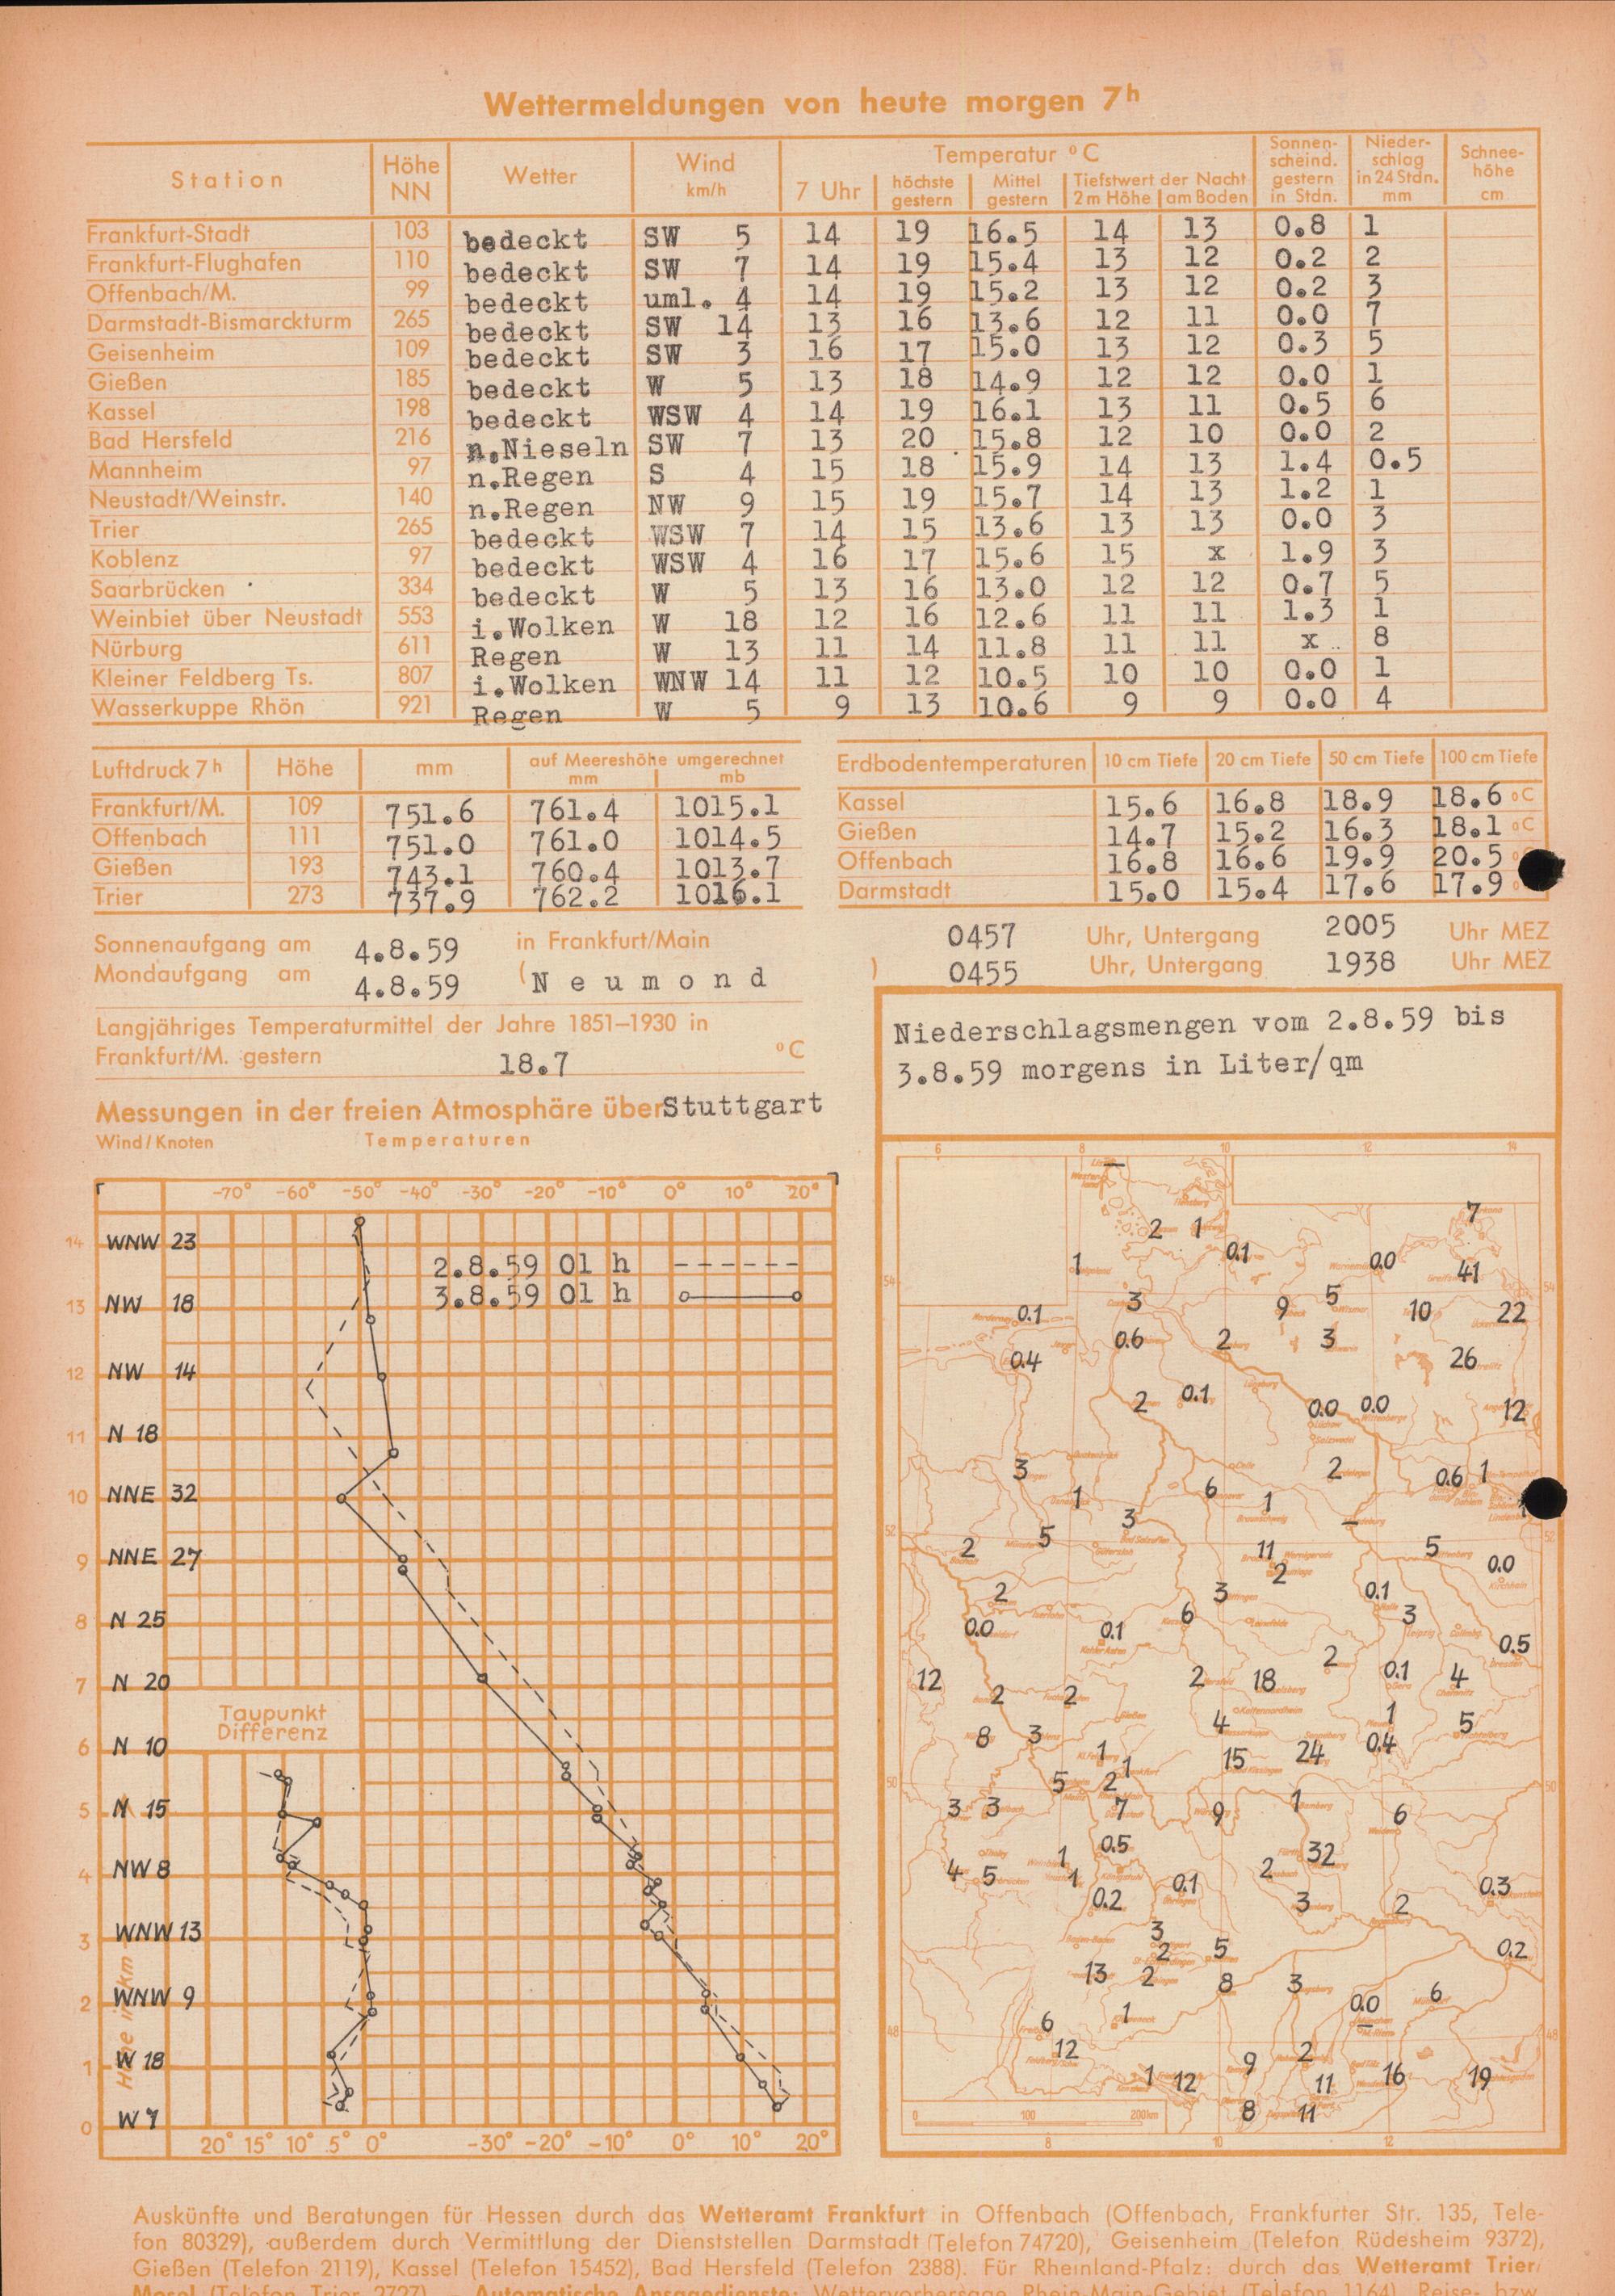 Wettermeldungen von heute morgen 7h
Station Höhe NN Wetter Wind km/h Temperatur °C Sonnenscheind. gestern in Stdn. Niederschlag in 24 Stdn. mm Schneehöhe cm
7 Uhr höchste gestern Mittel gestern Tiefstwert der Nacht 2 m Höhe am Boden
Frankfurt-Stadt 103 bedeckt SW 5 14 19 16.5 14 13 0.8 1
Frankfurt-Flughafen 110 bedeckt SW 7 14 19 15.4 13 12 0.2 2
Offenbach/M. 99 bedeckt uml. 4 14 19 15.2 13 12 0.2 3
Darmstadt-Bismarckturm 265 bedeckt SW 14 13 16 13.6 12 11 0.0 7
Geisenheim 109 bedeckt SW 3 16 17 15.0 13 12 0.3 5
Gießen 185 bedeckt W 5 13 18 14.9 12 12 0.0 1
Kassel 198 bedeckt WSW 4 14 19 16.1 13 11 0.5 6
Bad Hersfeld 216 n.Nieseln SW 7 13 20 15.8 12 10 0.0 2
Mannheim 97 n.Regen S 4 15 18 15.9 14 13 1.4 0.5
Neustadt/Weinstr. 140 n.Regen NW 9 15 19 15.7 14 13 1.2 1
Trier 265 bedeckt WSW 7 14 15 13.6 13 13 0.0 3
Koblenz 97 bedeckt WSW 4 16 17 15.6 15 x 1.9 3
Saarbrücken 334 bedeckt W 5 13 16 13.0 12 12 0.7 5
Weinbiet über Neustadt 553 i.Wolken W 18 12 16 12.6 11 11 1.3 1
Nürburg 611 Regen W 13 11 14 11.8 11 11 x 8
Kleiner Feldberg Ts. 807 i.Wolken WNW 14 11 12 10.5 10 10 0.0 1
Wasserkuppe Rhön 921 Regen W 5 9 13 10.6 9 9 0.0 4
Luftdruck 7h Höhe mm auf Meereshöhe umgerechnet mm mb
Frankfurt/M. 109 751.6 761.4 1015.1
Offenbach 111 751.0 761.0 1014.5
Gießen 193 743.1 760.4 1013.7
Trier 273 737.9 762.2 1016.1
Erdbodentemperaturen 10 cm Tiefe 20 cm Tiefe 50 cm Tiefe 100 cm Tiefe
Kassel 15.6 16.8 18.9 18.6 °C
Gießen 14.7 15.2 16.3 18.1 °C
Offenbach 16.8 16.6 19.9 20.5
Darmstadt 15.0 15.4 17.6 17.9
Sonnenaufgang am 4.8.59 in Frankfurt/Main 0457 Uhr, Untergang 2005 Uhr MEZ
Mondaufgang am 4.8.59 (Neumond ) 0455 Uhr, Untergang 1938 Uhr MEZ
Langjähriges Temperaturmittel der Jahre 1851–1930 in
Frankfurt/M. gestern 18.7 °C
Messungen in der freien Atmosphäre über Stuttgart
Wind/Knoten Temperaturen
-70° -60° -50° -40° -30° -20° -10° 0° 10° 20°
14 WNW 23
2.8.59 01 h
3.8.59 01 h
13 NW 18
12 NW 14
11 N 18
10 NNE 32
9 NNE 27
8 N 25
7 N 20
Taupunkt
Differenz
6 N 10
5 N 15
4 NW 8
3 WNW 13
2 WNW 9
1 W 18
0 W 7
Höhe in km
20° 15° 10° 5° 0° -30° -20° -10° 0° 10° 20°
Niederschlagsmengen vom 2.8.59 bis
3.8.59 morgens in Liter/qm
6 8 10 12 14
7
2 1
0.1
1 0.0 41
54 54
3 9 5 10 22
0.1
0.6 2 3
0.4 26
2 0.1 0.0 0.0 12
3 2 0.6 1
1 6 1
3
52 5 52
2 11 5 0.0
2
2 3 0.1
6 3
0.0 0.1 0.5
2
12 2 18 0.1 4
2 2
4 1 5
8 3 0.4
1 15 24
1
50 5 2 50
3 3 7 9 1 6
0.5
1 32
4 5 1 2
0.1 0.3
0.2 3 2
3
2 5 0.2
13 2 8 3 6
0.0
1
48 6 48
12 9 2
1 12 11 16 19
8 11
0 100 200km
8 10 12
Auskünfte und Beratungen für Hessen durch das Wetteramt Frankfurt in Offenbach (Offenbach, Frankfurter Str. 135, Tele-
fon 80329), außerdem durch Vermittlung der Dienststellen Darmstadt (Telefon 74720), Geisenheim (Telefon Rüdesheim 9372),
Gießen (Telefon 2119), Kassel (Telefon 15452), Bad Hersfeld (Telefon 2388). Für Rheinland-Pfalz: durch das Wetteramt Trier/
Mosel (Telefon Trier 2727). – Automatische Ansagedienste: Wettervorhersage Rhein-Main-Gebiet (Telefon 1164), Reise- bzw.